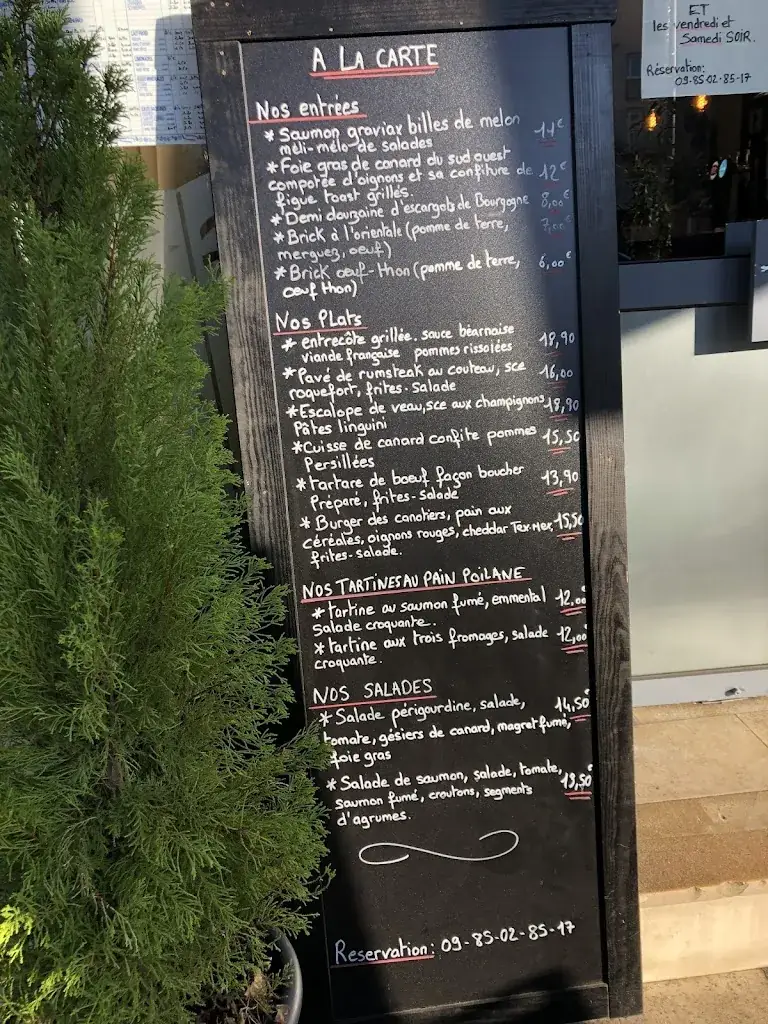 ET
les vendredi et
Samedi SOIR.
Réservation:
09-85-02-85-17
A LA CARTE
Nos entrées
* Saumon graviax billes de melon
méli-mélo de salades 11€
* Foie gras de canard du sud ouest
compotée d'oignons et sa confiture de 12€
figue toast grillés.
* Demi douzaine d'escargots de Bourgogne 8,00€
* Brick à l'orientale (pomme de terre, 7,00€
merguez, oeuf)
* Brick oeuf-thon (pomme de terre, 6,00€
oeuf thon)
Nos PLats
* entrecôte grillée. sauce béarnaise 18,90
viande française pommes rissolées
* Pavé de rumsteak au couteau, sce 16,00
roquefort, frites-Salade
* Escalope de veau, sce aux champignons 18,90
Pâtes linguini
* Cuisse de canard confite pommes 15,50
Persillées
* tartare de boeuf façon boucher 13,90
Préparé, frites-Salade
* Burger des canotiers, pain aux
céréales, oignons rouges, cheddar Tex-Mex, 15,50
frites-salade.
NOS TARTINES AU PAIN POILANE
* tartine au saumon fumé, emmental 12,00€
Salade croquante.
* tartine aux trois fromages, salade 12,00€
croquante.
NOS SALADES
* Salade périgourdine, salade, 14,50€
tomate, gésiers de canard, magret fumé,
foie gras
* Salade de saumon, salade, tomate, 13,50€
saumon fumé, croutons, segments
d'agrumes.
Reservation: 09-85-02-85-17